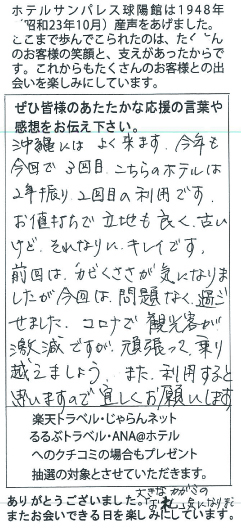 ホテルサンパレス球陽館は1948年
(昭和23年10月)産声をあげました。
ここまで歩んでこられたのは、たくさん
のお客様の笑顔と、支えがあったからで
す。これからもたくさんのお客様との出
会いを楽しみにしています。
ぜひ皆様のあたたかな応援の言葉や
感想をお伝え下さい。
沖縄にはよく来ます。今年も
今回で3回目。こちらのホテルは
2年振り、2回目の利用です。
お値打ちで立地も良く、古い
けど、それなりにキレイです。
前回は、カビくささが気になりま
したが今回は、問題なく過ご
せました。コロナで観光客が
激減ですが、頑張って、乗り
越えましょう。また、利用すると
思いますので宜しくお願いします
楽天トラベル・じゃらんネット
るるぶトラベル・ANA@ホテル
へのクチコミの場合もプレゼント
抽選の対象とさせていただきます。
大きな
ありがとうございました。
またお会いできる日を楽しみにしています。